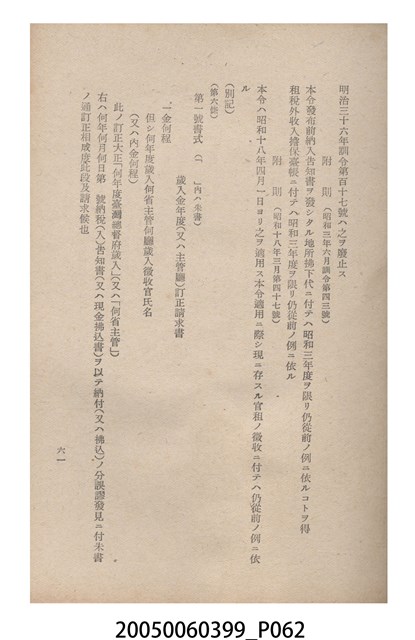 明治三十六年訓令第百十七號ハ之ヲ廢止ス
附　則　（昭和三年六月訓令第四三號）
本令發布前納入告知書ヲ發シタル地所拂下代ニ付テハ昭和三年度ヲ限リ仍從前ノ例ニ依ルコトヲ得
租稅外收入擔保臺帳ニ付テハ昭和三年度ヲ限リ仍從前ノ例ニ依ル
附　則　（昭和十八年三月第四十七號）
本令ハ昭和十八年四月一日ヨリ之ヲ適用ス本令適用ニ際シ現ニ存スル官租ノ徵收ニ付テハ仍從前ノ例ニ依
ル
（別記）
（第六條）
第一號書式（「　」內ハ朱書）
歲入金年度（又ハ主管廳）訂正請求書
一金何程
但シ何年度歲入何省主管何廳歲入徵收官氏名
（又ハ內金何程）
此ノ訂正大正「何年度臺灣總督府歲入」（又ハ「何省主管」）
右ハ何年何月何日第　號納稅（入）告知書（又ハ現金拂込書）ヲ以テ納付（又ハ拂込）ノ分誤謬發見ニ付朱書
ノ通訂正相成度此段及請求候也
六一
20050060399_P062